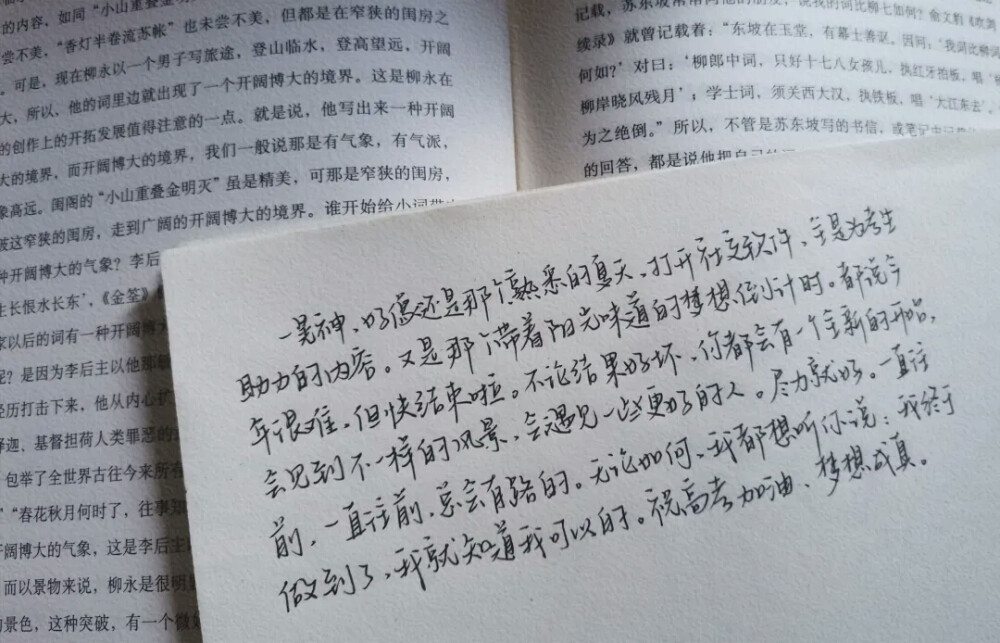 的内容，如同“小山重叠金明灭”
尝不美，“香灯半卷流苏帐”也未尝不美，但都是在窄狭的闺房之
。可是，现在柳永以一个男子写旅途，登山临水，登高望远，开阔
大，所以，他的词里边就出现了一个开阔博大的境界。这是柳永在
的创作上的开拓发展值得注意的一点。就是说，他写出来一种开阔
大的境界，而开阔博大的境界，我们一般说那是有气象，有气派，
象高远。闺阁的“小山重叠金明灭”虽是精美，可那是窄狭的闺房，
破这窄狭的闺房，走到广阔的开阔博大的境界。谁开始给小词带
种开阔博大的气象？李后
生长恨水长东’，《金荃》
家以后的词有一种开阔博
呢？是因为李后主以他那
经历打击下来，他从内心
释迦、基督担荷人类罪恶的
包举了全世界古往今来所有
“春花秋月何时了，往事知
开阔博大的气象，这是李后主
而以景物来说，柳永是很明
的景色，这种突破，有一个微
记载，苏东坡常常问他的
说我的词比柳七如何？俞文豹《吹剑
续录》就曾记载着：“东坡在玉堂，有幕士善讴，因问：‘我词比柳词
何如？’对曰：‘柳郎中词，只好十七八女孩儿，执红牙拍板，唱‘杨
柳岸晓风残月’；学士词，须关西大汉，执铁板，唱‘大江东去’，
为之绝倒。”所以，不管是苏东坡写的书信，或笔记中
的回答，都是说他把自己的词
一晃神、好像还是那个熟悉的夏天、打开社交软件、全是为考生
助力的内容。又是那个带着阳光味道的梦想倒计时。都说今
年很难，但快结束啦。不论结果好坏、你都会有一个全新的开始，
会见到不一样的风景、会遇见一些更好的人。尽力就好。一直往
前，一直往前，总会有路的。无论如何、我都想听你说：我终于
做到了、我就知道我可以的。祝高考加油、梦想成真。